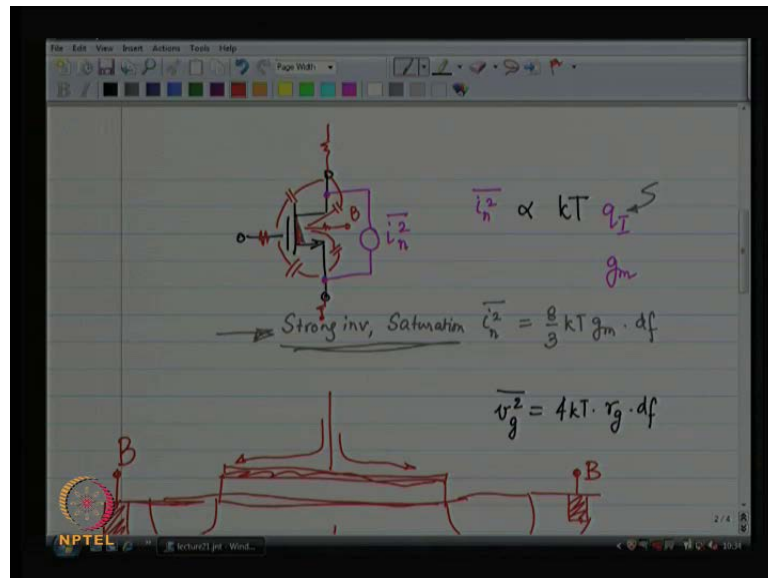 File Edit View Insert Actions Tools Help
Page Width
B I
B
i_n^2
i_n^2 ∝ kT q_I
g_m
Strong inv, Saturation i_n^2 = 8/3 kT g_m · df
v_g^2 = 4kT · r_g · df
B
B
NPTEL
2 / 4
lecture21.jnt - Wind...
10:34